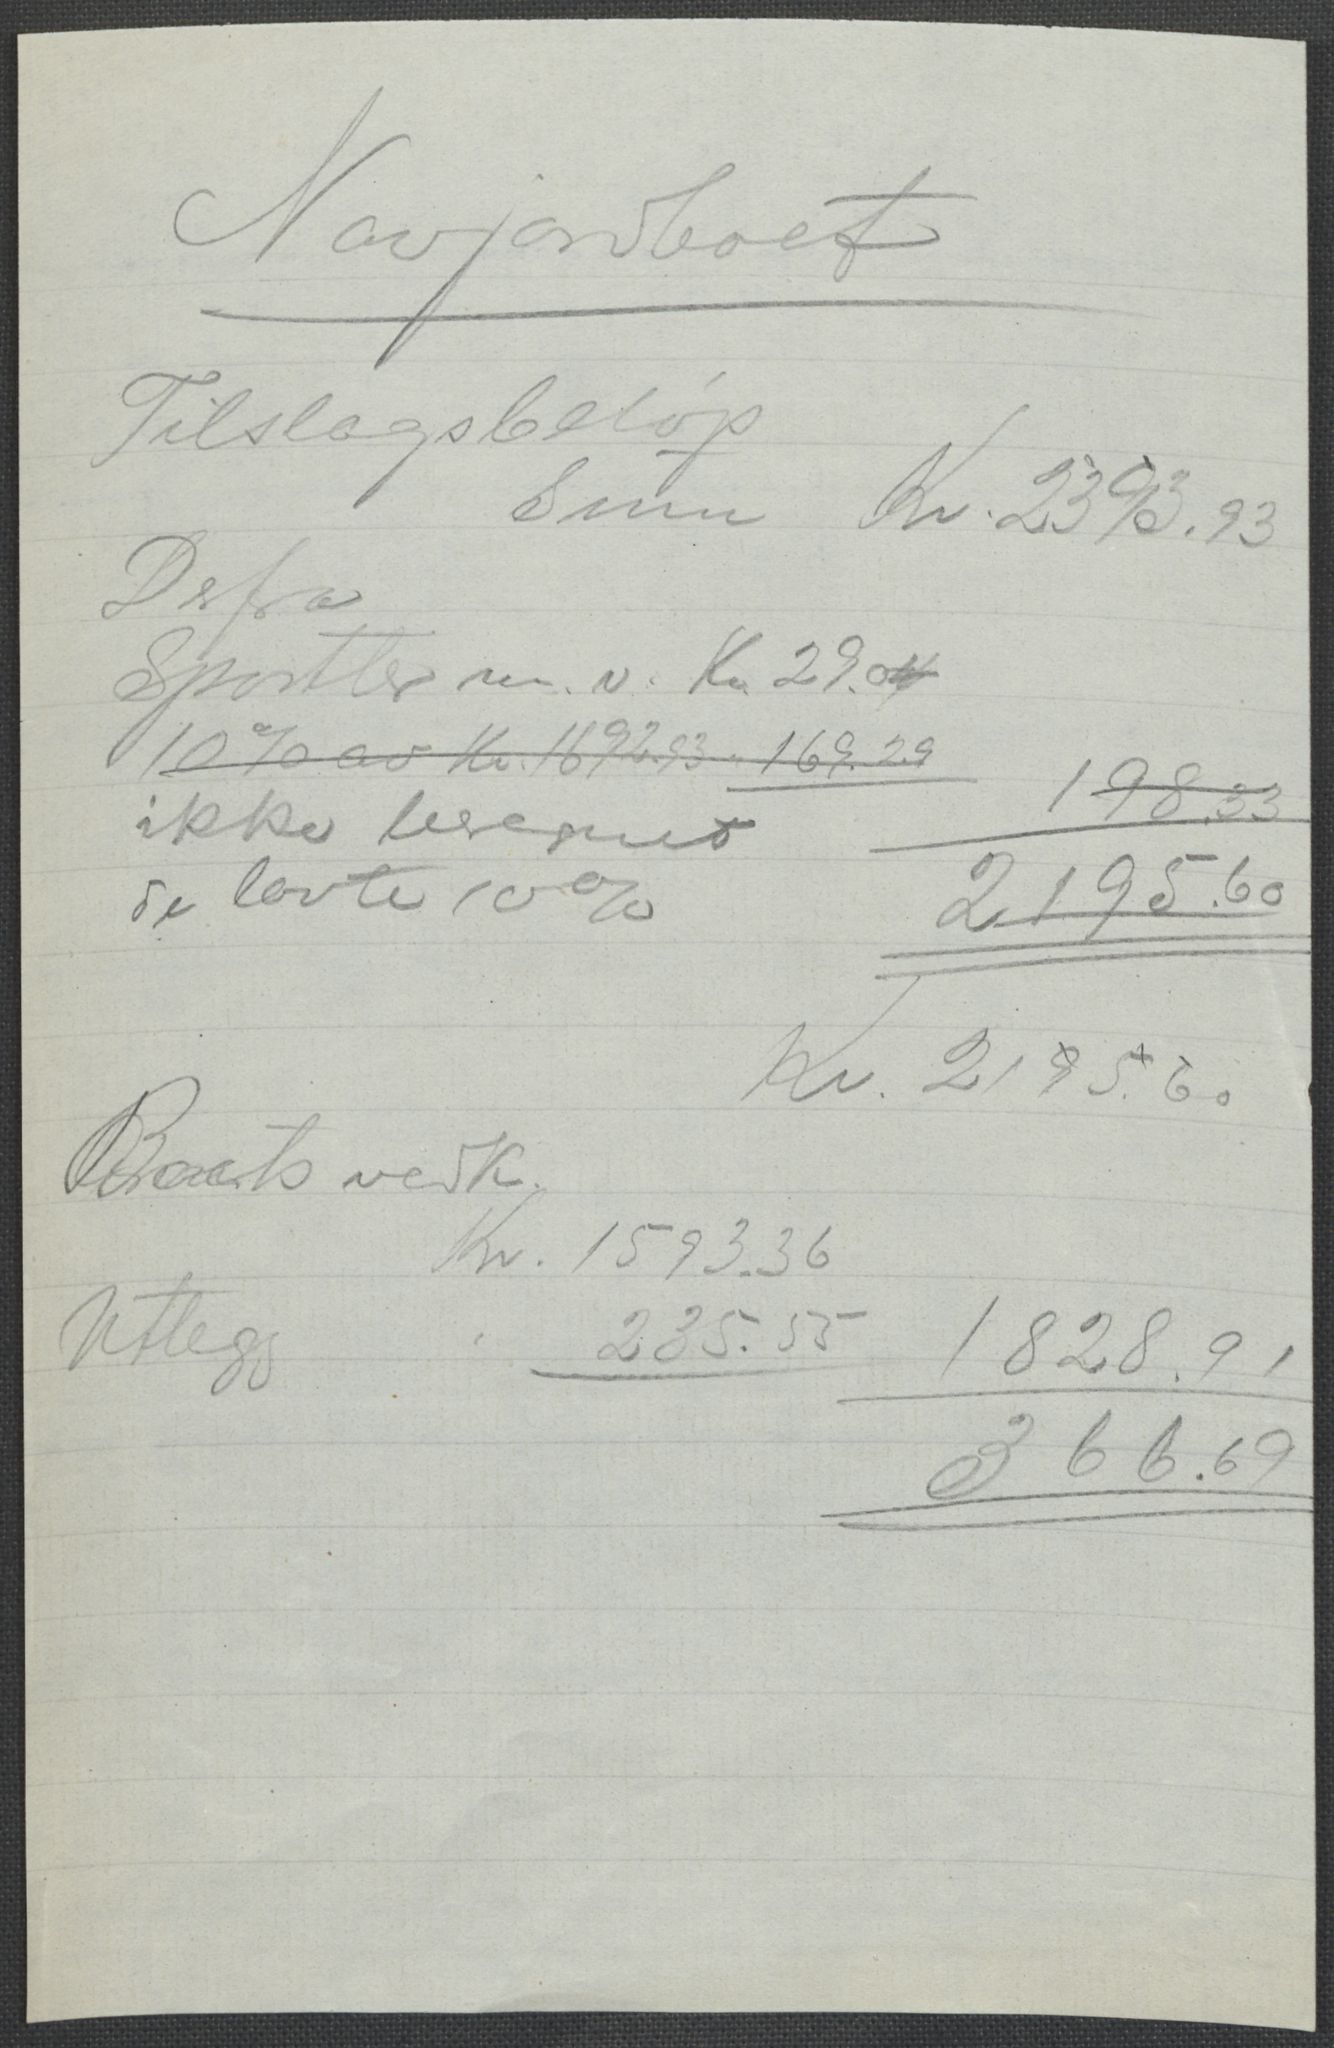 Navjordboet
Tilslagsbeløp
Sum Kr. 2393.93
Derfra
Sportler m. v. Kr. 29.04
10% av Kr. 1692.93 · 169.29 198.33
ikke beregnet
de lovte 10% 2195.60
Kr. 2195.60
Braats vedk.
Kr. 1593.36
Utlegg " 235.55 1828.91
366.69